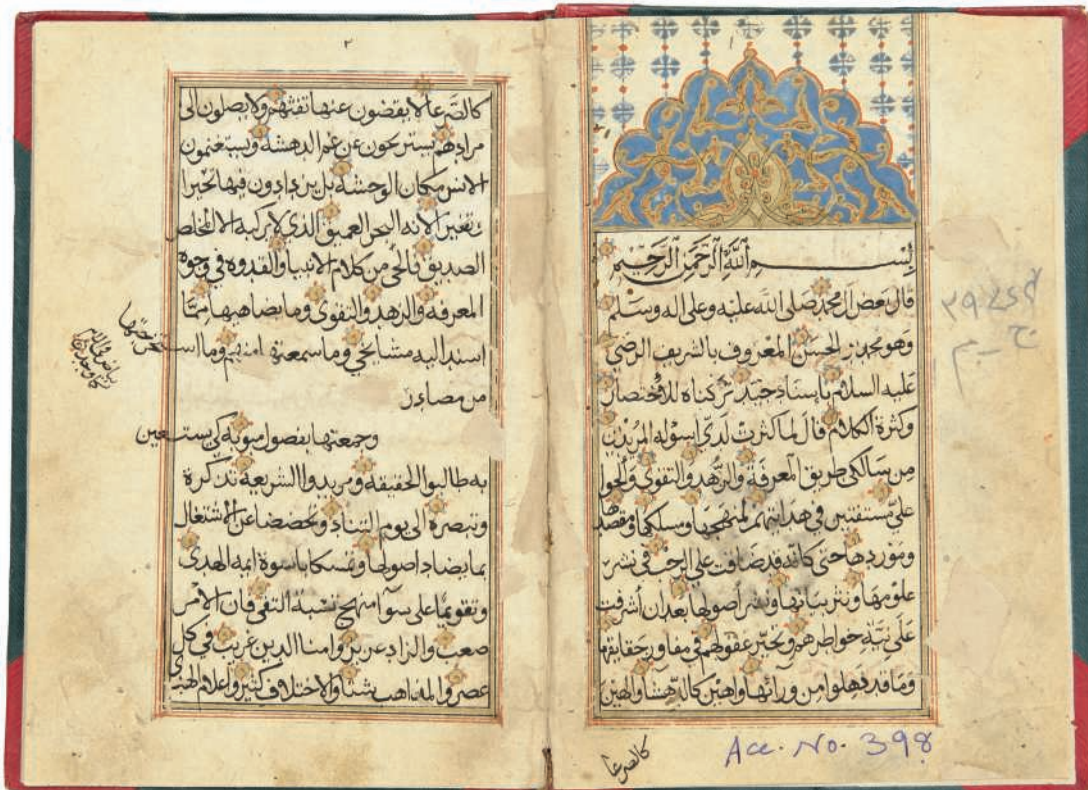 ١
بسم الله الرحمن الرحيم
قال بعض آل محمد صلى الله عليه وعلى اله وسلم
وهو محمد بن الحسن المعروف بالشريف الرضي
عليه السلام باسناد جيد تركناه للاختصار
وكثرة الكلام قال لما كثرت لدي اسوله المريدين
من سالكي طريق المعرفة والزهد والتقوى والحوا
على مستفتين في هدايتهم لمنهجها ومسلكها ومقصدها
وموردها حتى كانه قد ضاقت على الرحب في نشر
علومها ونثر بيانها ونشر أصولها بعد ان أشرفت
على نية خواطرهم وتحير عقولهم في مفاوز حقايقها
وما قد ذهلوا من ورائها واهين كالدهشا والهين
كالصرعا
Acc. No. 398
٢
كالصرعا لا يقضون عنها تفثهم ولا يصلون الى
مرادهم يستريحون عن غم الدهشة ويستغنمون
الانس مكان الوحشة بل يزدادون فيها تحيرا
لانه البحر العميق الذي لا يركبه الا المخلص
الصديق من كلام الانبيا والقدوه في وجوه
المعرفة والزهد والتقوى وما يضاهيها مما
اسند اليه مشايخي وما سمعته منهم وما استخرجتها
من مصادر
وجمعتها بفصول مبوبة كي يستعين
به طالبوا الحقيقة ومريدوا الشريعة تذكرة
وتبصرة الى يوم التناد وتحضضا عن الاشتغال
بما يضاد اصولها وتمسكا باسوة ايمه الهدى
وتقويما على سوآ منهج نسبة التقى فان الامر
صعب والزاد عزيز وامنا الدين غريب في كل
عصر والمذاهب شتا والاختلاف كثير واعلام الهدى